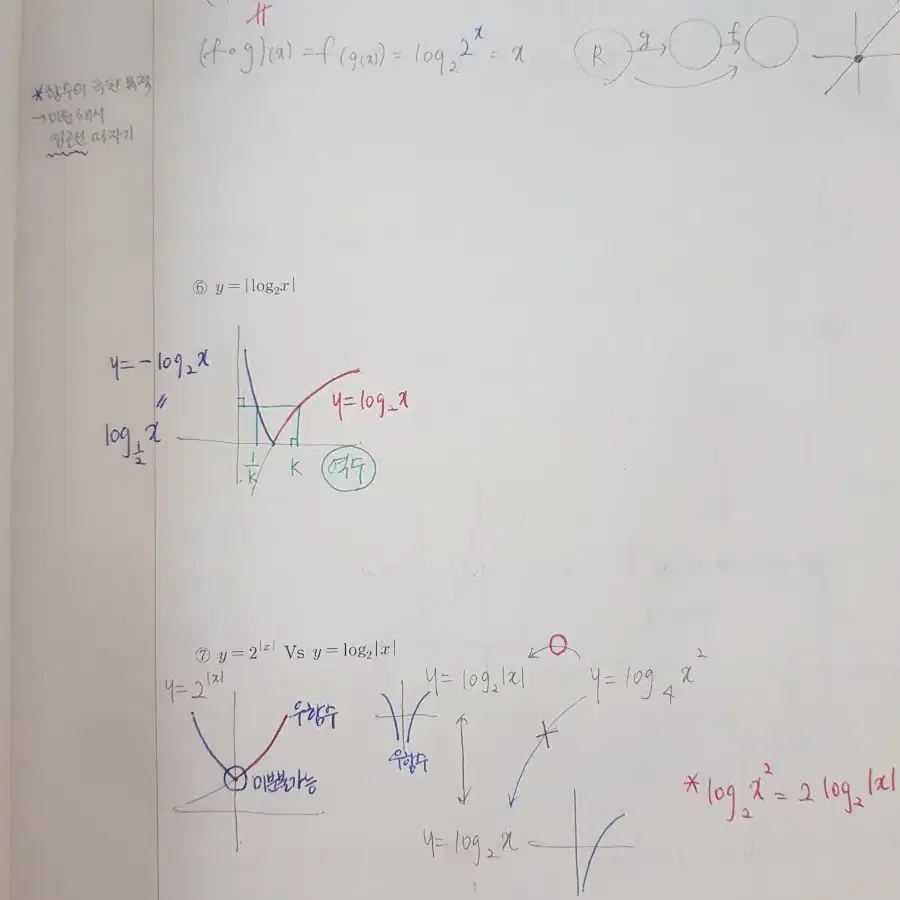 (f∘g)(x) = f(g(x)) = log₂2ˣ = x
R g f
*함수의 극한 목적
→미분해서
점근선 따지기
⑥ y=|log₂x|
y=-log₂x
〃
log_{1/2} x
y=log₂x
1/K K 역수
⑦ y=2^{|x|} Vs y=log₂|x|
y=2^{|x|}
우함수
미분불가능
y=log₂|x| y=log₄x²
우함수
*log₂x²=2log₂|x|
y=log₂x